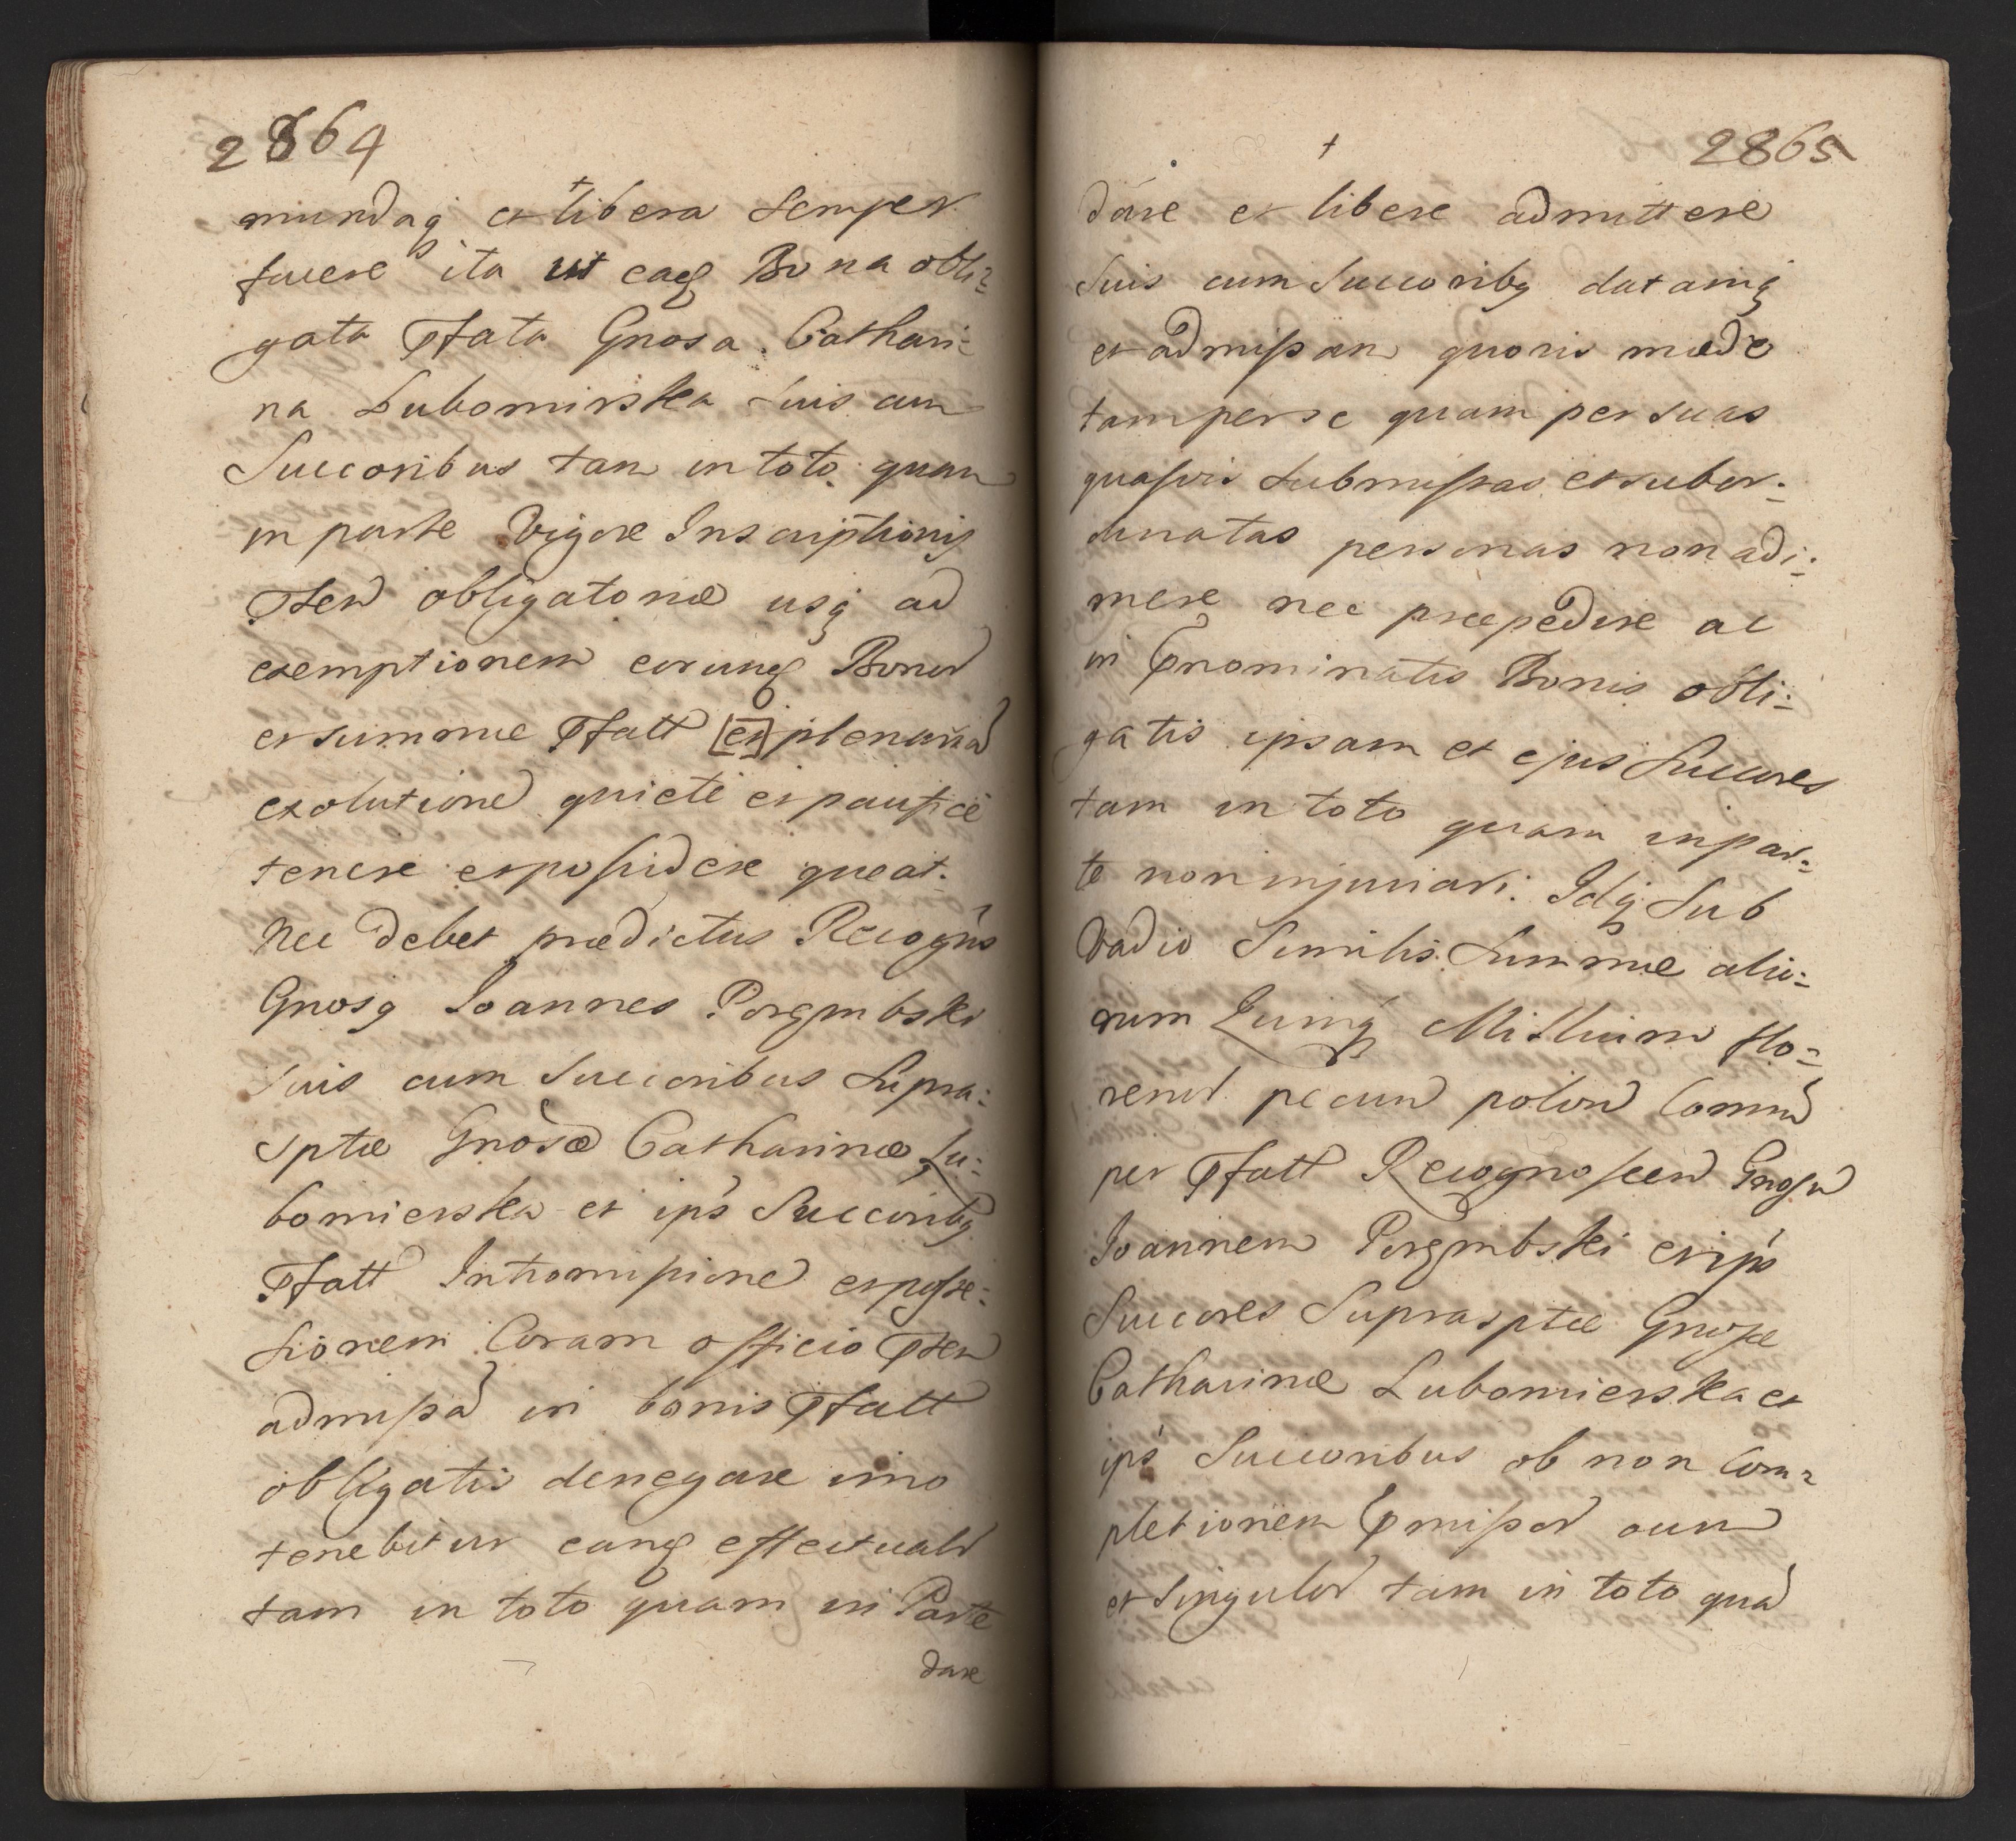 2864
mundaq et libera semper
fuere ita ut eaq Bona obli=
gata Pfata Gnosa. Cathari=
na Lubomirska suis cum
Succoribus tam in toto quam
in parte Vigore Inscriptionis
Pten obligatoriæ usq ad
exemptionem eorunq Bonor
et summæ Pfatt [et] plenaria
exolutione quiete et paufice
tenere et possidere queat.
Nec debet prædictus Recogns
Gnosq Joannes Porembski
suis cum succoribus Supra=
sptæ Gnosæ Catharinæ Lu=
bomierska et ips Succoribq
Pfatt Intromissione et posse=
sionem Coram officio Pten
admissa in bonis Pfatt
obligatis denegare imo
tenebitur eanq effectuald
tam in toto quam in Parte
dare
2865
dare et libere admittere
Suis cum Succoribq datamq
et admissam quovis modo
tam per se quam per suas
quasvis submissas et subor=
dinatas personas non adi=
mere nec præpedire ac
in Pnominatis Bonis obli=
gatis ipsam et ejus Succores
tam in toto quam in par=
te non injuriari. Idq Sub
Vadio Similis Summæ alio=
rum Quinq Millium flo=
renor pecun polon Comm
per Pfatt Recognoscen Gnosu
Joannem Porembski et ips
Succores Suprasptæ Gnosæ
Catharinæ Lubomierska et
ips Succoribus ob non Com=
pletionem Pmissor oum
et singulor tam in toto qua